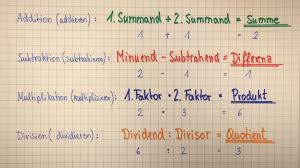 Addition (addieren): 1. Summand + 2. Summand = Summe
1 + 1 = 2
Subtraktion (subtrahieren): Minuend - Subtrahend = Differenz
2 - 1 = 1
Multiplikation (multiplizieren): 1. Faktor · 2. Faktor = Produkt
2 · 3 = 6
Division (dividieren): Dividend : Divisor = Quotient
6 : 2 = 3